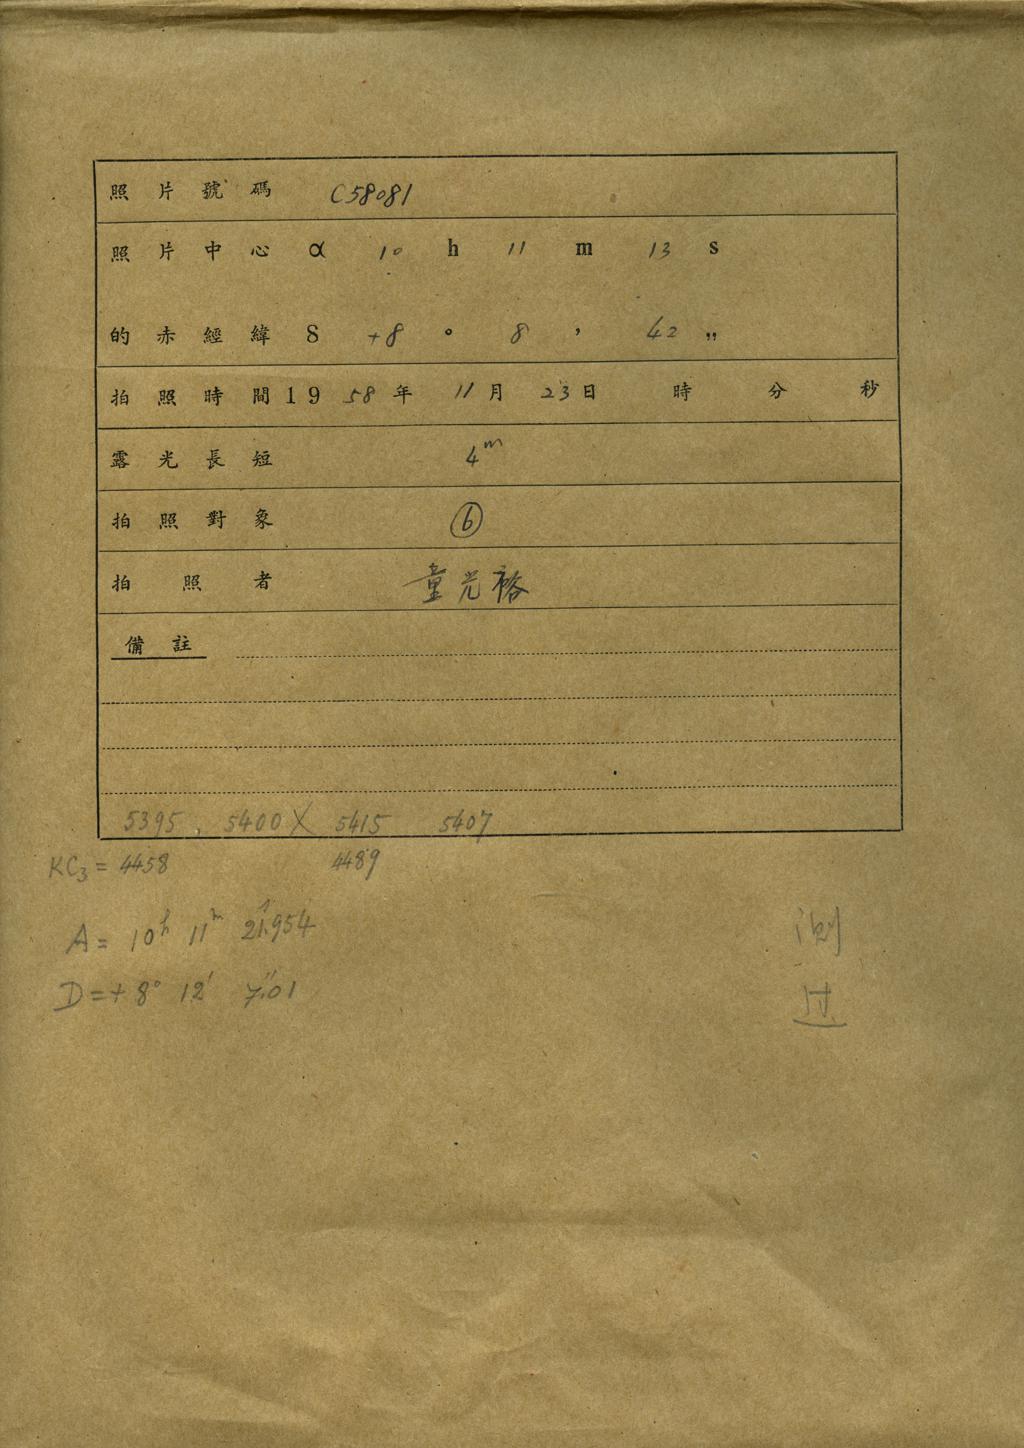 照片號碼 C58081
照片中心 α 10 h 11 m 13 s
的赤經緯 δ +8 ° 8 ′ 42 ″
拍照時間 1958年 11月 23日 時 分 秒
露光長短 4ᵐ
拍照對象 ⑥
拍照者 童光裕
備註
5395 . 5400 X 5415 5407
KC₃ = 4458 4489
A = 10ʰ 11ᵐ 21ˢ.954
D = + 8° 12′ 7″.01
测
过